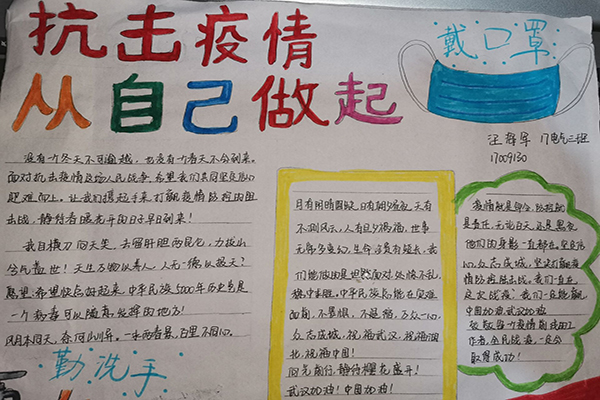 抗击疫情
从自己做起
戴口罩
17电气二班
17009130
没有一个冬天不可逾越,也没有一个春天不会到来。
面对抗击疫情这场人民战争,希望我们共同坚定信心
起难而上。让我们携起手来,打赢疫情防控的阻
击战,静待春暖花开的日子早日到来!
我自横刀向天笑,去留肝胆两昆仑,力拔山
兮气盖世!天生万物以养人,人无一德以报天?
愿望,希望快点好起来,中华民族5000年历史多是
一个病毒可以随意诋毁的地方!
风月本同天,奈何山川异。一水两春景,百里不同心。
勤洗手
月有阴晴圆缺,日有朝夕昼夜,天有
不测风云,人有旦夕祸福,世事
无常多变幻,生命诚贵有短长,我
们能做的是坦然面对,处惊不乱,
稳中求胜。中华民族总能在灾难
面前,不畏惧,不退缩,万众一心,
众志成城,祝福武汉,祝福湖
北,祝福中国!
阳光前行,静待樱花盛开!
武汉加油!中国加油!
疫情就是命令,防控就
是责任,无论白天,还是黑夜
他们的身影一直都在,坚定信
心,众志成城,坚决打赢疫
情防控阻击战。我们一直在
这次战疫!我们一定能赢,
中国加油,武汉加油
致敬每一个疫情前线的工
作者,全民战疫,一定会
取得成功!